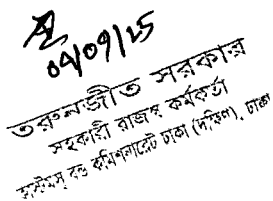 04/09/25
তরুনজীত সরকার
সহকারী রাজস্ব কর্মকর্তা
কাস্টমস্ বন্ড কমিশনারেট ঢাকা (দক্ষিণ), ঢাকা